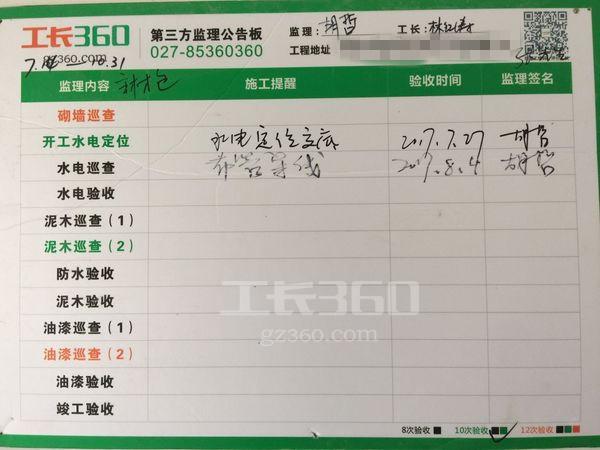 工长360 第三方监理公告板 监理：胡哲 工长：
gz360.com 027-85360360 工程地址
监理内容 施工提醒 验收时间 监理签名
砌墙巡查
开工水电定位 水电定位交底 2017.7.27 胡哲
水电巡查 布管穿线 2017.8.4 胡哲
水电验收
泥木巡查（1）
泥木巡查（2）
防水验收
泥木验收
油漆巡查（1）
油漆巡查（2）
油漆验收
竣工验收
工长360
gz360.com
8次验收 10次验收 12次验收